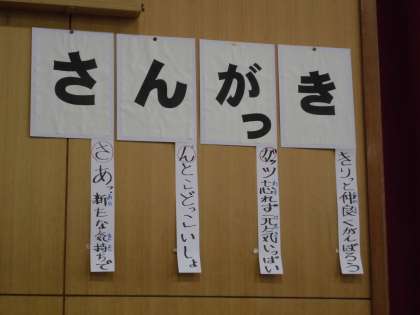 さんがっき
さあっ新たな気持ちで
んとこどっこいしょ
ガッツも忘れず元気いっぱい
きりっと仲良くがんばろう